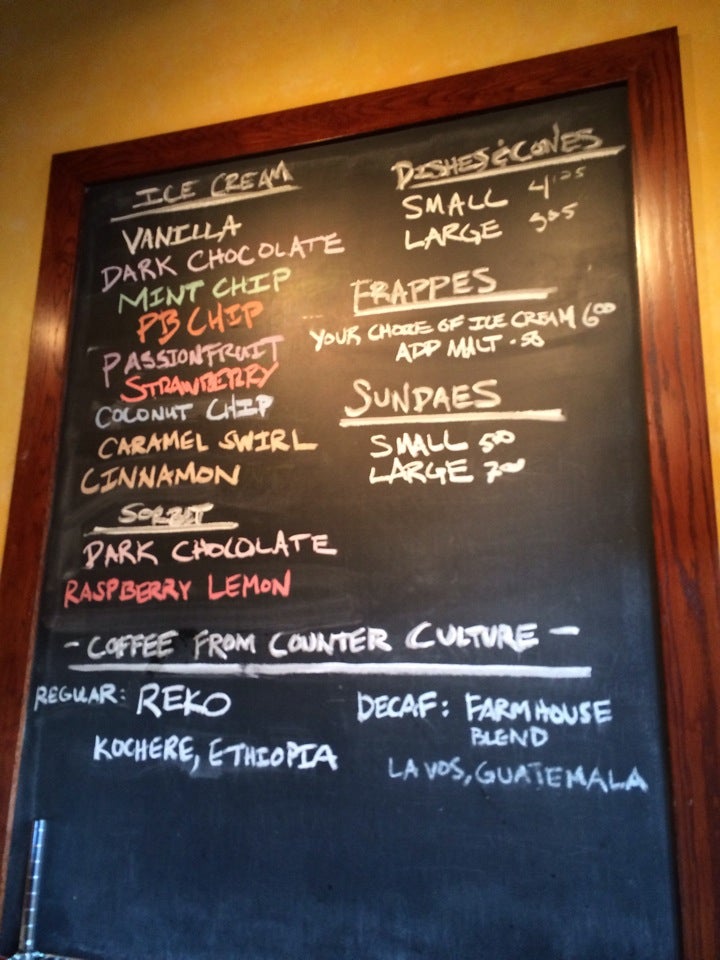 ICE CREAM
VANILLA
DARK CHOCOLATE
MINT CHIP
PB CHIP
PASSIONFRUIT
STRAWBERRY
COCONUT CHIP
CARAMEL SWIRL
CINNAMON
SORBET
DARK CHOCOLATE
RASPBERRY LEMON
DISHES & CONES
SMALL 4.25
LARGE
FRAPPES
YOUR CHOICE OF ICE CREAM 6.00
ADD MALT .50
SUNDAES
SMALL 5.00
LARGE 7.00
- COFFEE FROM COUNTER CULTURE -
REGULAR: REKO
KOCHERE, ETHIOPIA
DECAF: FARMHOUSE
BLEND
LA VOS, GUATEMALA